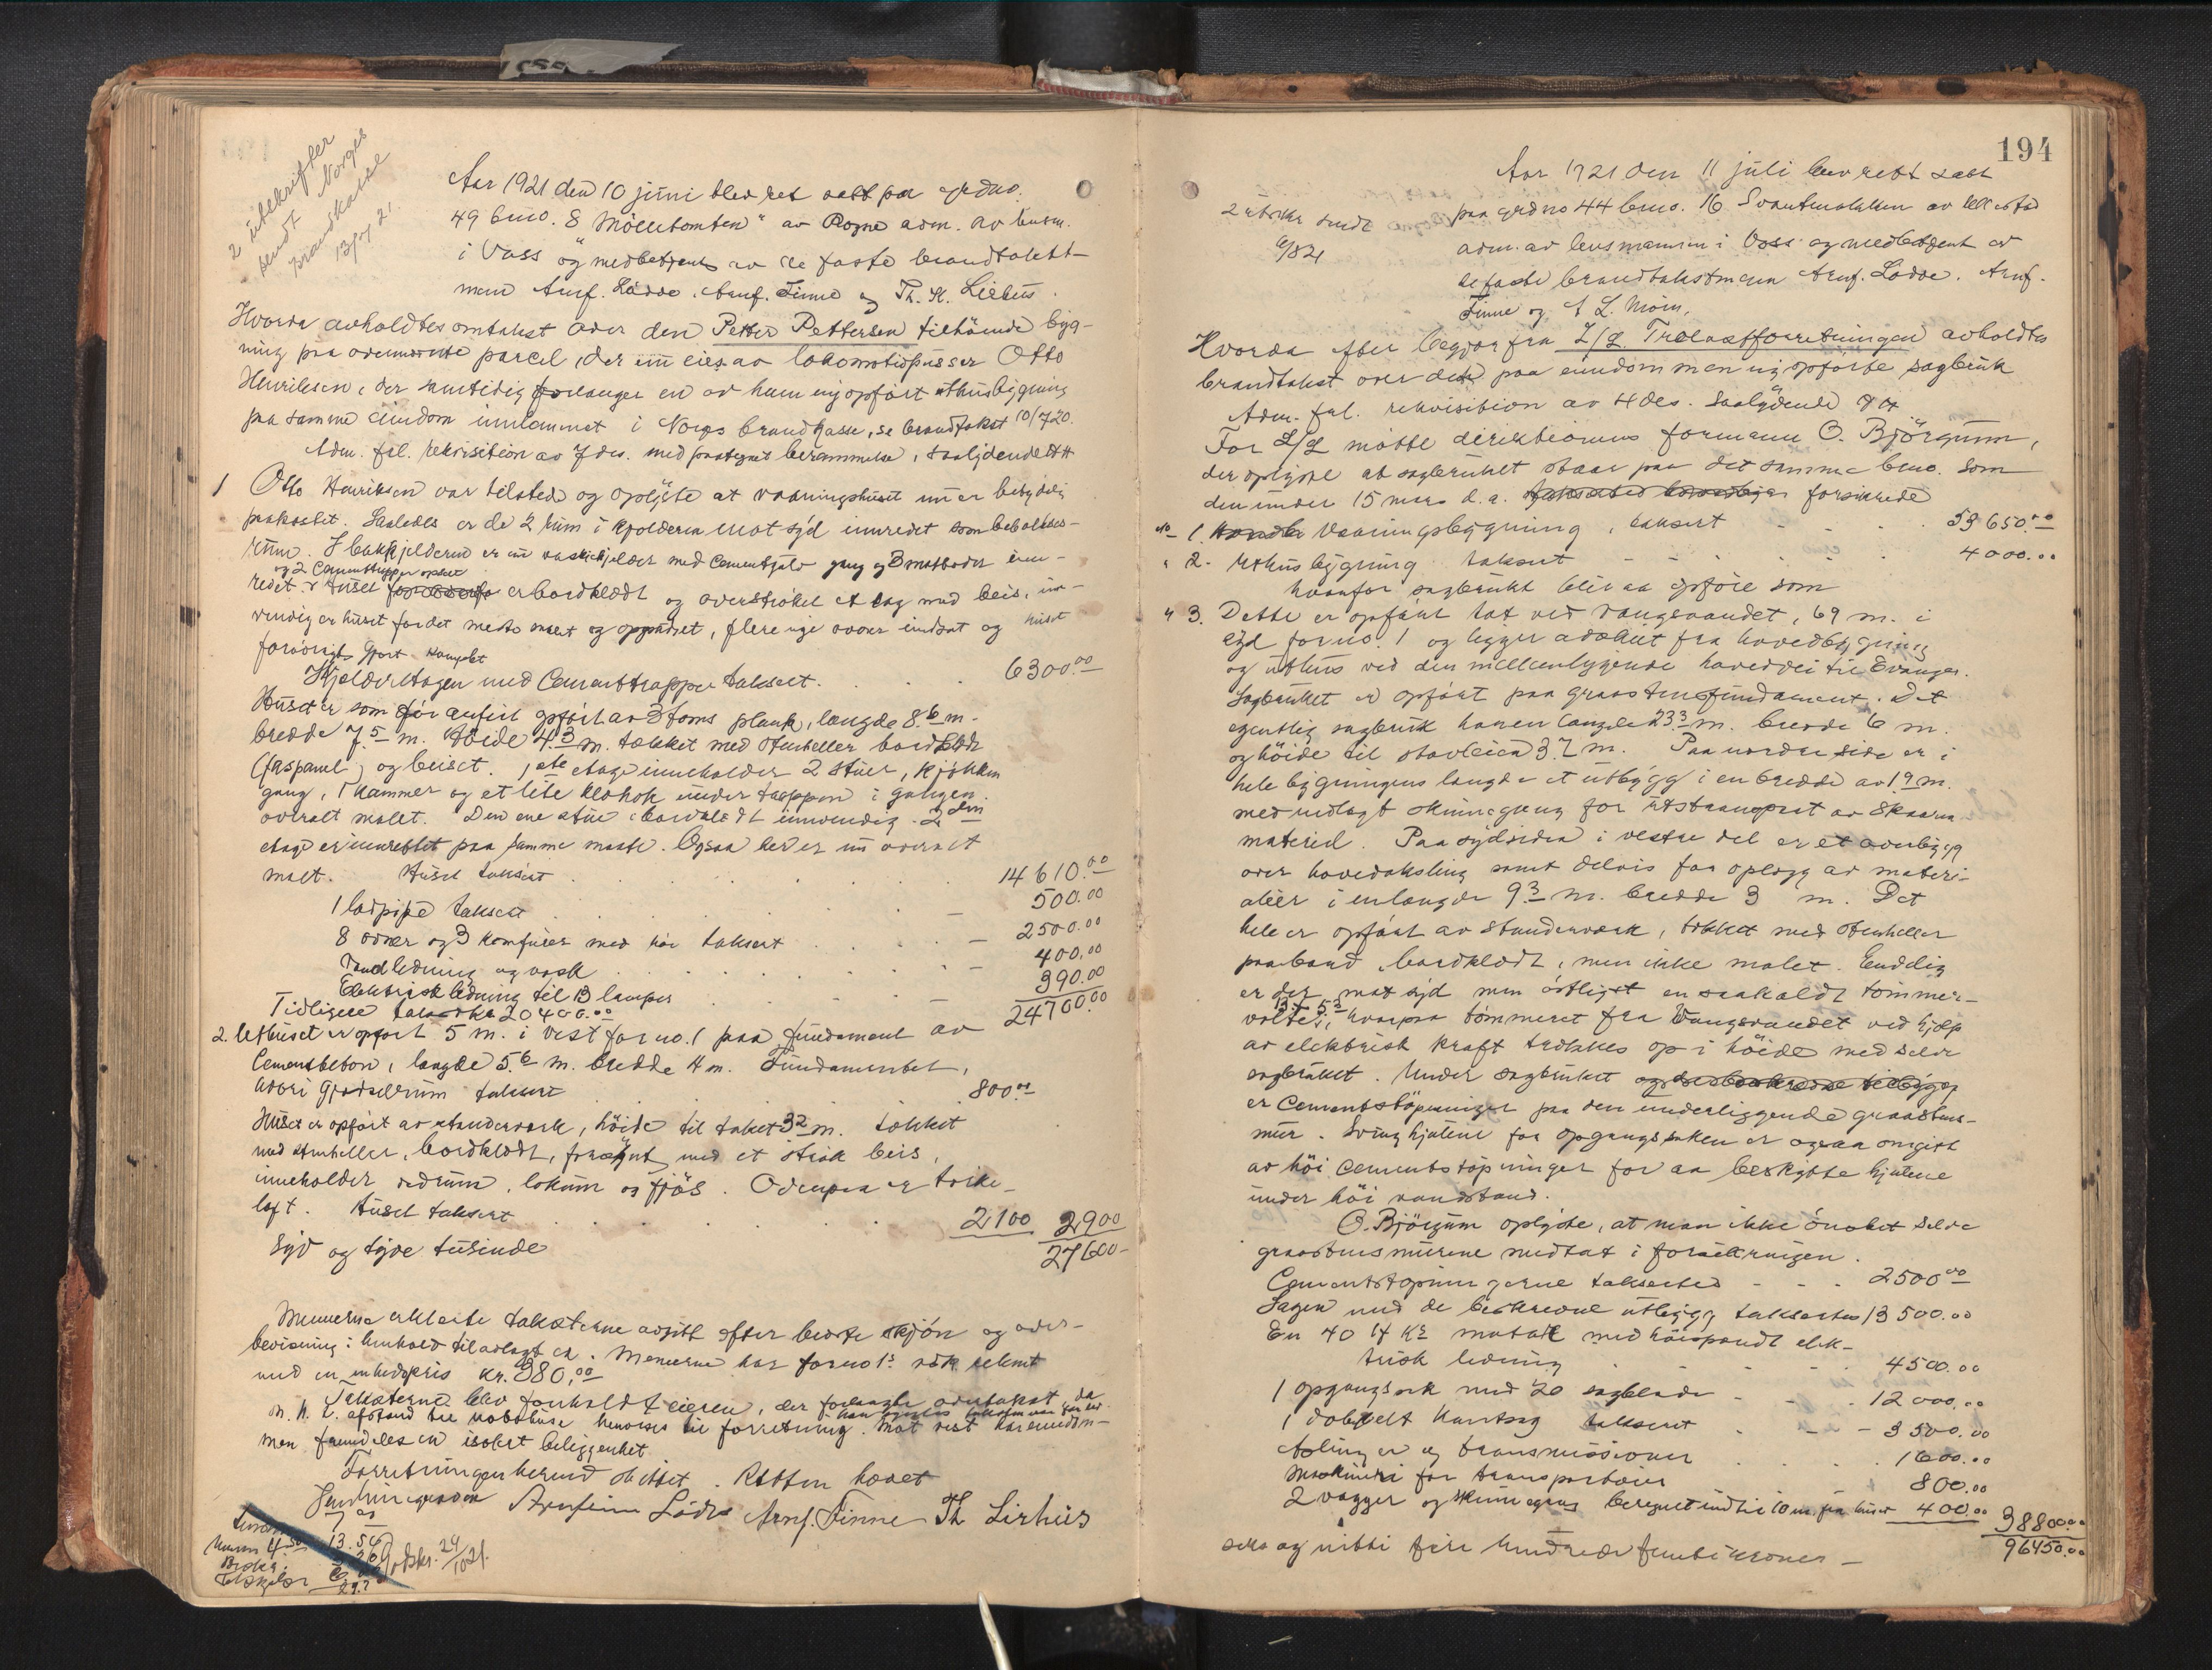 2 utskrifter
sendt Norges
brandkasse
13/7 21.
Aar 1921 den 10 juni blev ret satt paa grdno.
49 bno. 8 "Mölletomten" av Rogne adm. av lensm.
i Voss og medbetjent av de faste brandtakst-
mænd Arnf. Lödve, Arnf. Finne og Th. K. Lirhus.
Hvorda avholdtes omtakst over den Petter Pettersen tilhörende byg-
ning paa ovennævnte parcel, der nu eies av lokomotivpusser Otto
Henriksen, der samtidig forlanger en av ham nyopfört uthusbygning
paa samme eiendom indlemmet i Norges brandkasse, se brandtakst 10/7 20.
Adm. frl. rekvisition av 7 ds. med paategnet berammelse, saalydende
1 Otto Henriksen var tilstede og oplyste at vaaningshuset nu er betydelig
paakostet. Saaledes er de 2 rum i kjelderen mot syd innredet som beboelses-
rum. I bakkjelderen er nu vaskekjelder med cementgulv gang og 3 matboder inn-
og 2 Cementtrapper opsat
redet. Huset er bordklædt og overströket et slag med beis, inn-
vendig er huset for det meste malet og oppudset, flere nye ovner indsat og huset
forövrigt gjort komplet
Kjelderetagen med Cementtrapper taksert . . . 6300.00
Huset er som för anfört opfört av 3 toms plank, længde 8.6 m.
bredde 7.5 m. Höide 4.3 m. tækket med stenheller bordklædt
(faspanel) og beiset. 1ste etage inneholder 2 stuer, kjökken
gang, 1 kammer og et lite klokok under trappen i gangen.
overalt malet. Den ene stue bordklædt innvendig. 2den
etage er innredet paa samme maate. Ogsaa her er nu overalt
malt. Huset taksert . . . 14610.00
1 ladpipe taksert . . . 500.00
8 ovner og 3 komfurer med rör taksert . . . 2500.00
Vandledning og vask . . . 400.00
Elektrisk ledning til 13 lamper . . . 390.00
Tidligere takst kr 20400.00 24700.00
2. Uthuset er opfört 5 m. i vest for no. 1 paa fundament av
Cementbeton, længde 5.6 m. bredde 4 m. Fundamentet,
hvori gjödselrum taksert . . . 800.00
Huset er opfört av stenderverk, höide til taket 3.2 m. tækket
med stenheller, bordklædt, forsynt med et strök beis,
inneholder vedrum, lokum og fjös. Ovenpaa er törke-
loft. Huset taksert . . . 2100 2900
Syv og tyve tusinde 27600-
Mennerne erklærte taksterne avgitt efter bedste skjön og over-
bevisning i henhold til avlagt ed. Mennerne har for no 1s vedk. relmt
med en enhedspris kr. 380,00
Taksterne blev forholdt eieren, der forlangte overtakst, da
m. h. t. afstand til nabohuse henvises til forretning. Mot vest har eiendom-
men fremdeles en isolert beliggenhet
Forretningen hermed sluttet. Retten hævet
Arnfinn Lödve Arnf. Finne Th Lirhus
13.50
Godskr. 29/10 21.
194
2 utskr. sendt
6/8 21
Aar 1921 den 11 juli blev rett satt
paa grdno 44 bno. 16 Svartenakken av Ullestad
adm. av lensmannen i Voss og medbetjent av
de faste brandtakstmenn Arnf. Lödve. Arnf.
Finne og A L. Möen.
Hvorda efter begjær fra I/L Trelastforretningen avholdtes
brandtakst over det paa eiendommen ny opförte sagbruk
Adm. frl. rekvisition av 4 ds. saalydende
For I/L mötte direktionens formann O. Björgum,
der oplyste at sagbruket staar paa det samme bno. som
den under 15 mars d.a. forsikrede
no 1. Vaaningsbygning, taksert - - - 53650.00
" 2. Uthusbygning taksert - - - 4000.00
hvorfor sagbruket blir aa opföre som
" 3. Dette er opfört tæt ved Vangsvandet, 69 m. i
syd for no. 1 og ligger adskilt fra hovedbygning
og uthus ved den mellemliggende hovedvei til Evanger.
Sagbruket er opfört paa graastensfundament. Det
egentlig sagbruk har en længde 23.3 m. bredde 6 m.
og höide til stavleien 3.7 m. Paa nordre side er i
hele bygningens længde et utbygg i en bredde av 1.9 m.
med indlagt skinnegang for uttransport av skaaren
materiel. Paa sydsiden i vestre del er et overbygg
over hovedaksling samt delvis for oplegg av materi-
aler i en længde 9.3 m. bredde 3 m. Det
hele er opfört av stenderverk, tækket med stenheller
paa bord, bordklædt, men ikke malet. Endelig
er der mot syd men östligst en saakaldt tömmer-
velte, hvorpaa tömmeret fra Vangsvandet ved hjelp
av elektrisk kraft trekkes op i höide med selve
sagbruket. Under sagbruket
er Cementstöpninger paa den underliggende graastens-
mur. Svinghjulene for opgangssaken er ogsaa omgitt
av höi cementstöpninger for aa beskytte hjulene
under höi vandstand.
O. Björgum oplyste, at man ikke önsket selve
graastensmurene medtat i forsikringen.
Cementstöpningerne taksertes - - - 2500.00
Sagen med de beskrevne utbygg taksertes 13500.00
En 40 H Kr motor med höispændt elek-
trisk ledning - - - 4500.00
1 opgangssak med 20 sagblade - - - 12000.00
1 dobbelt kantsag taksert - - - 3500.00
Aslinger og transmissioner . . . 1600.00
Maskineri for transportöier 800.00
2 vogger og skinnegang beregnet indtil 10 m. fra huset 400.00 38800.00
seks og nitti fire hundrede femti kroner - 96450.00